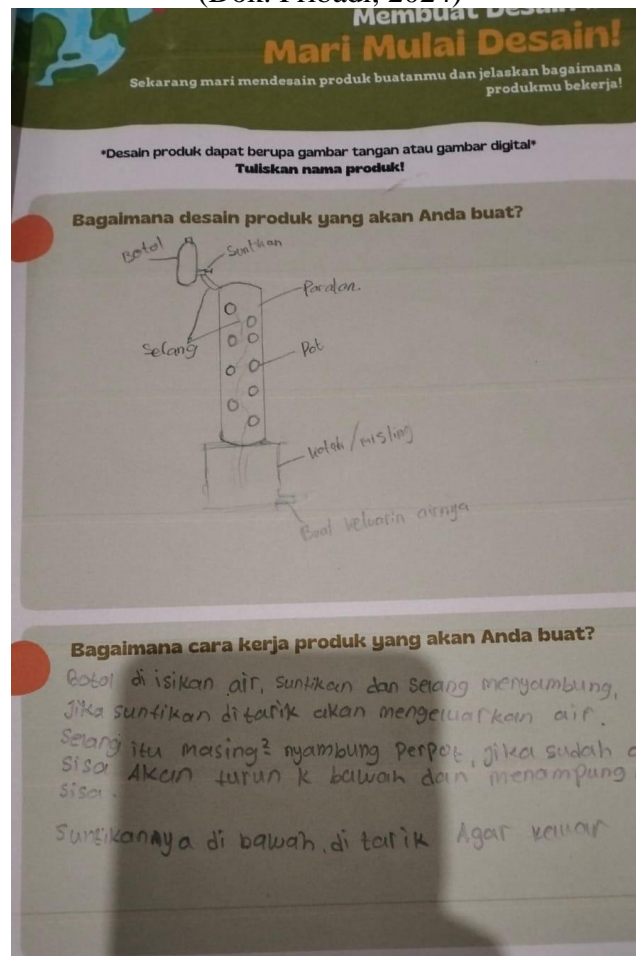 (Dok. Pribadi, 2024)
Membuat Desain
Mari Mulai Desain!
Sekarang mari mendesain produk buatanmu dan jelaskan bagaimana
produkmu bekerja!
*Desain produk dapat berupa gambar tangan atau gambar digital*
Tuliskan nama produk!
Bagaimana desain produk yang akan Anda buat?
Botol
Suntikan
Paralon.
Selang
Pot
kotak / misling
Buat keluarin airnya
Bagaimana cara kerja produk yang akan Anda buat?
Botol di isikan air, suntikan dan selang menyambung,
Jika suntikan ditarik akan mengeluarkan air.
Selang itu masing² nyambung perpot, jika sudah
sisa Akan turun k bawah dan menampung
sisa.
Suntikannya di bawah, di tarik Agar keluar